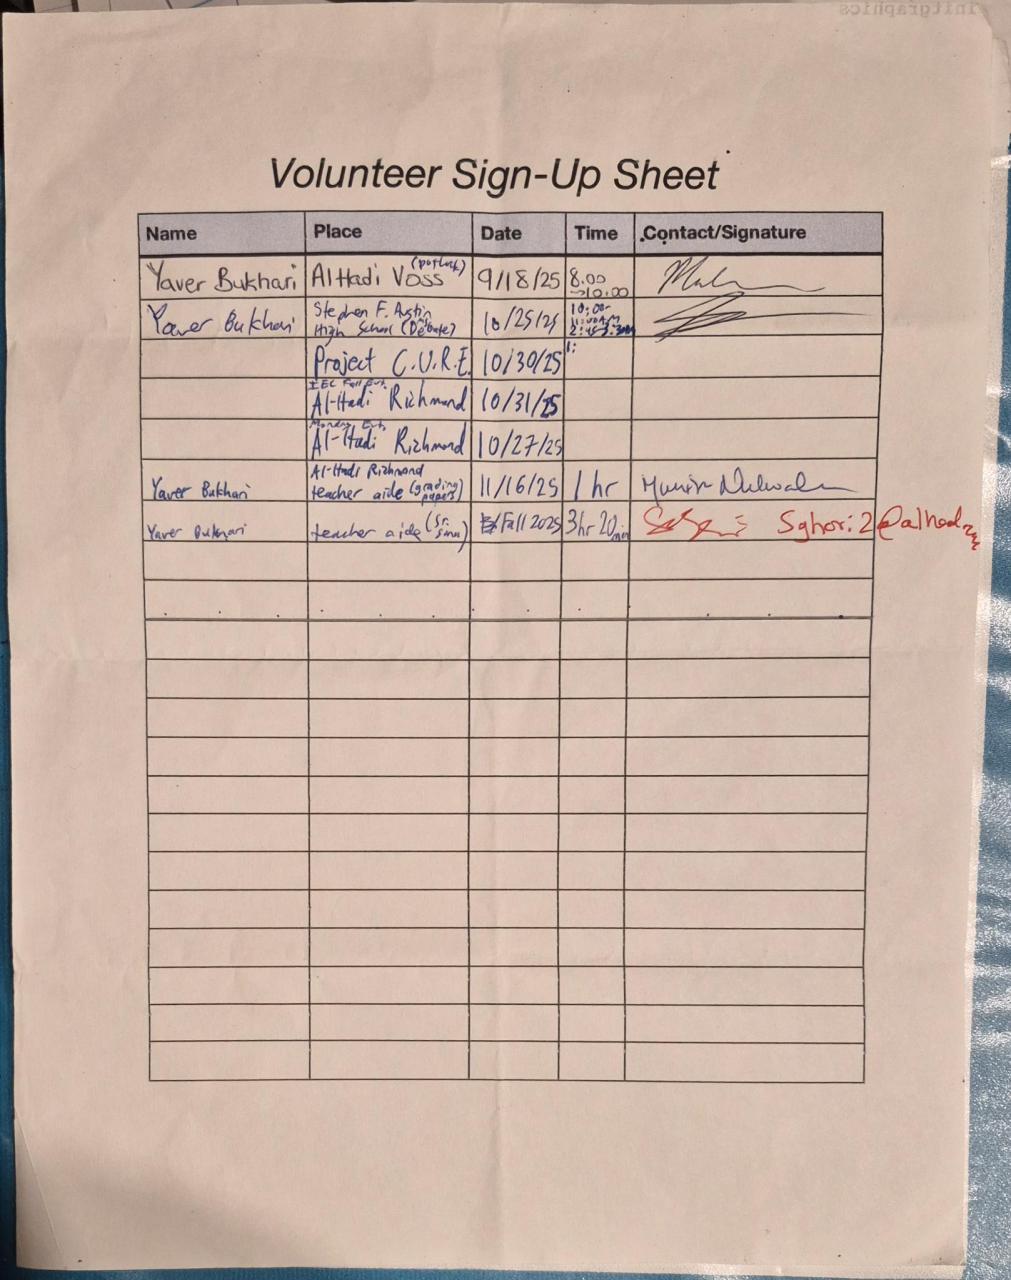 Volunteer Sign-Up Sheet
Name Place Date Time Contact/Signature
Yaver Bukhari Al Hadi Voss (potluck) 9/18/25 8:00 →10:00
Yaver Bukhari Stephen F. Austin High School (Debate) 10/25/25 10:00-
Project C.U.R.E. 10/30/25 1:
Al-Hadi Richmond 10/31/25
Al-Hadi Richmond 10/27/25
Yaver Bukhari Al-Hadi Richmond teacher aide (grading papers) 11/16/25 1 hr
Yaver Bukhari teacher aide Fall 2025 3hr 20min
initgraphics